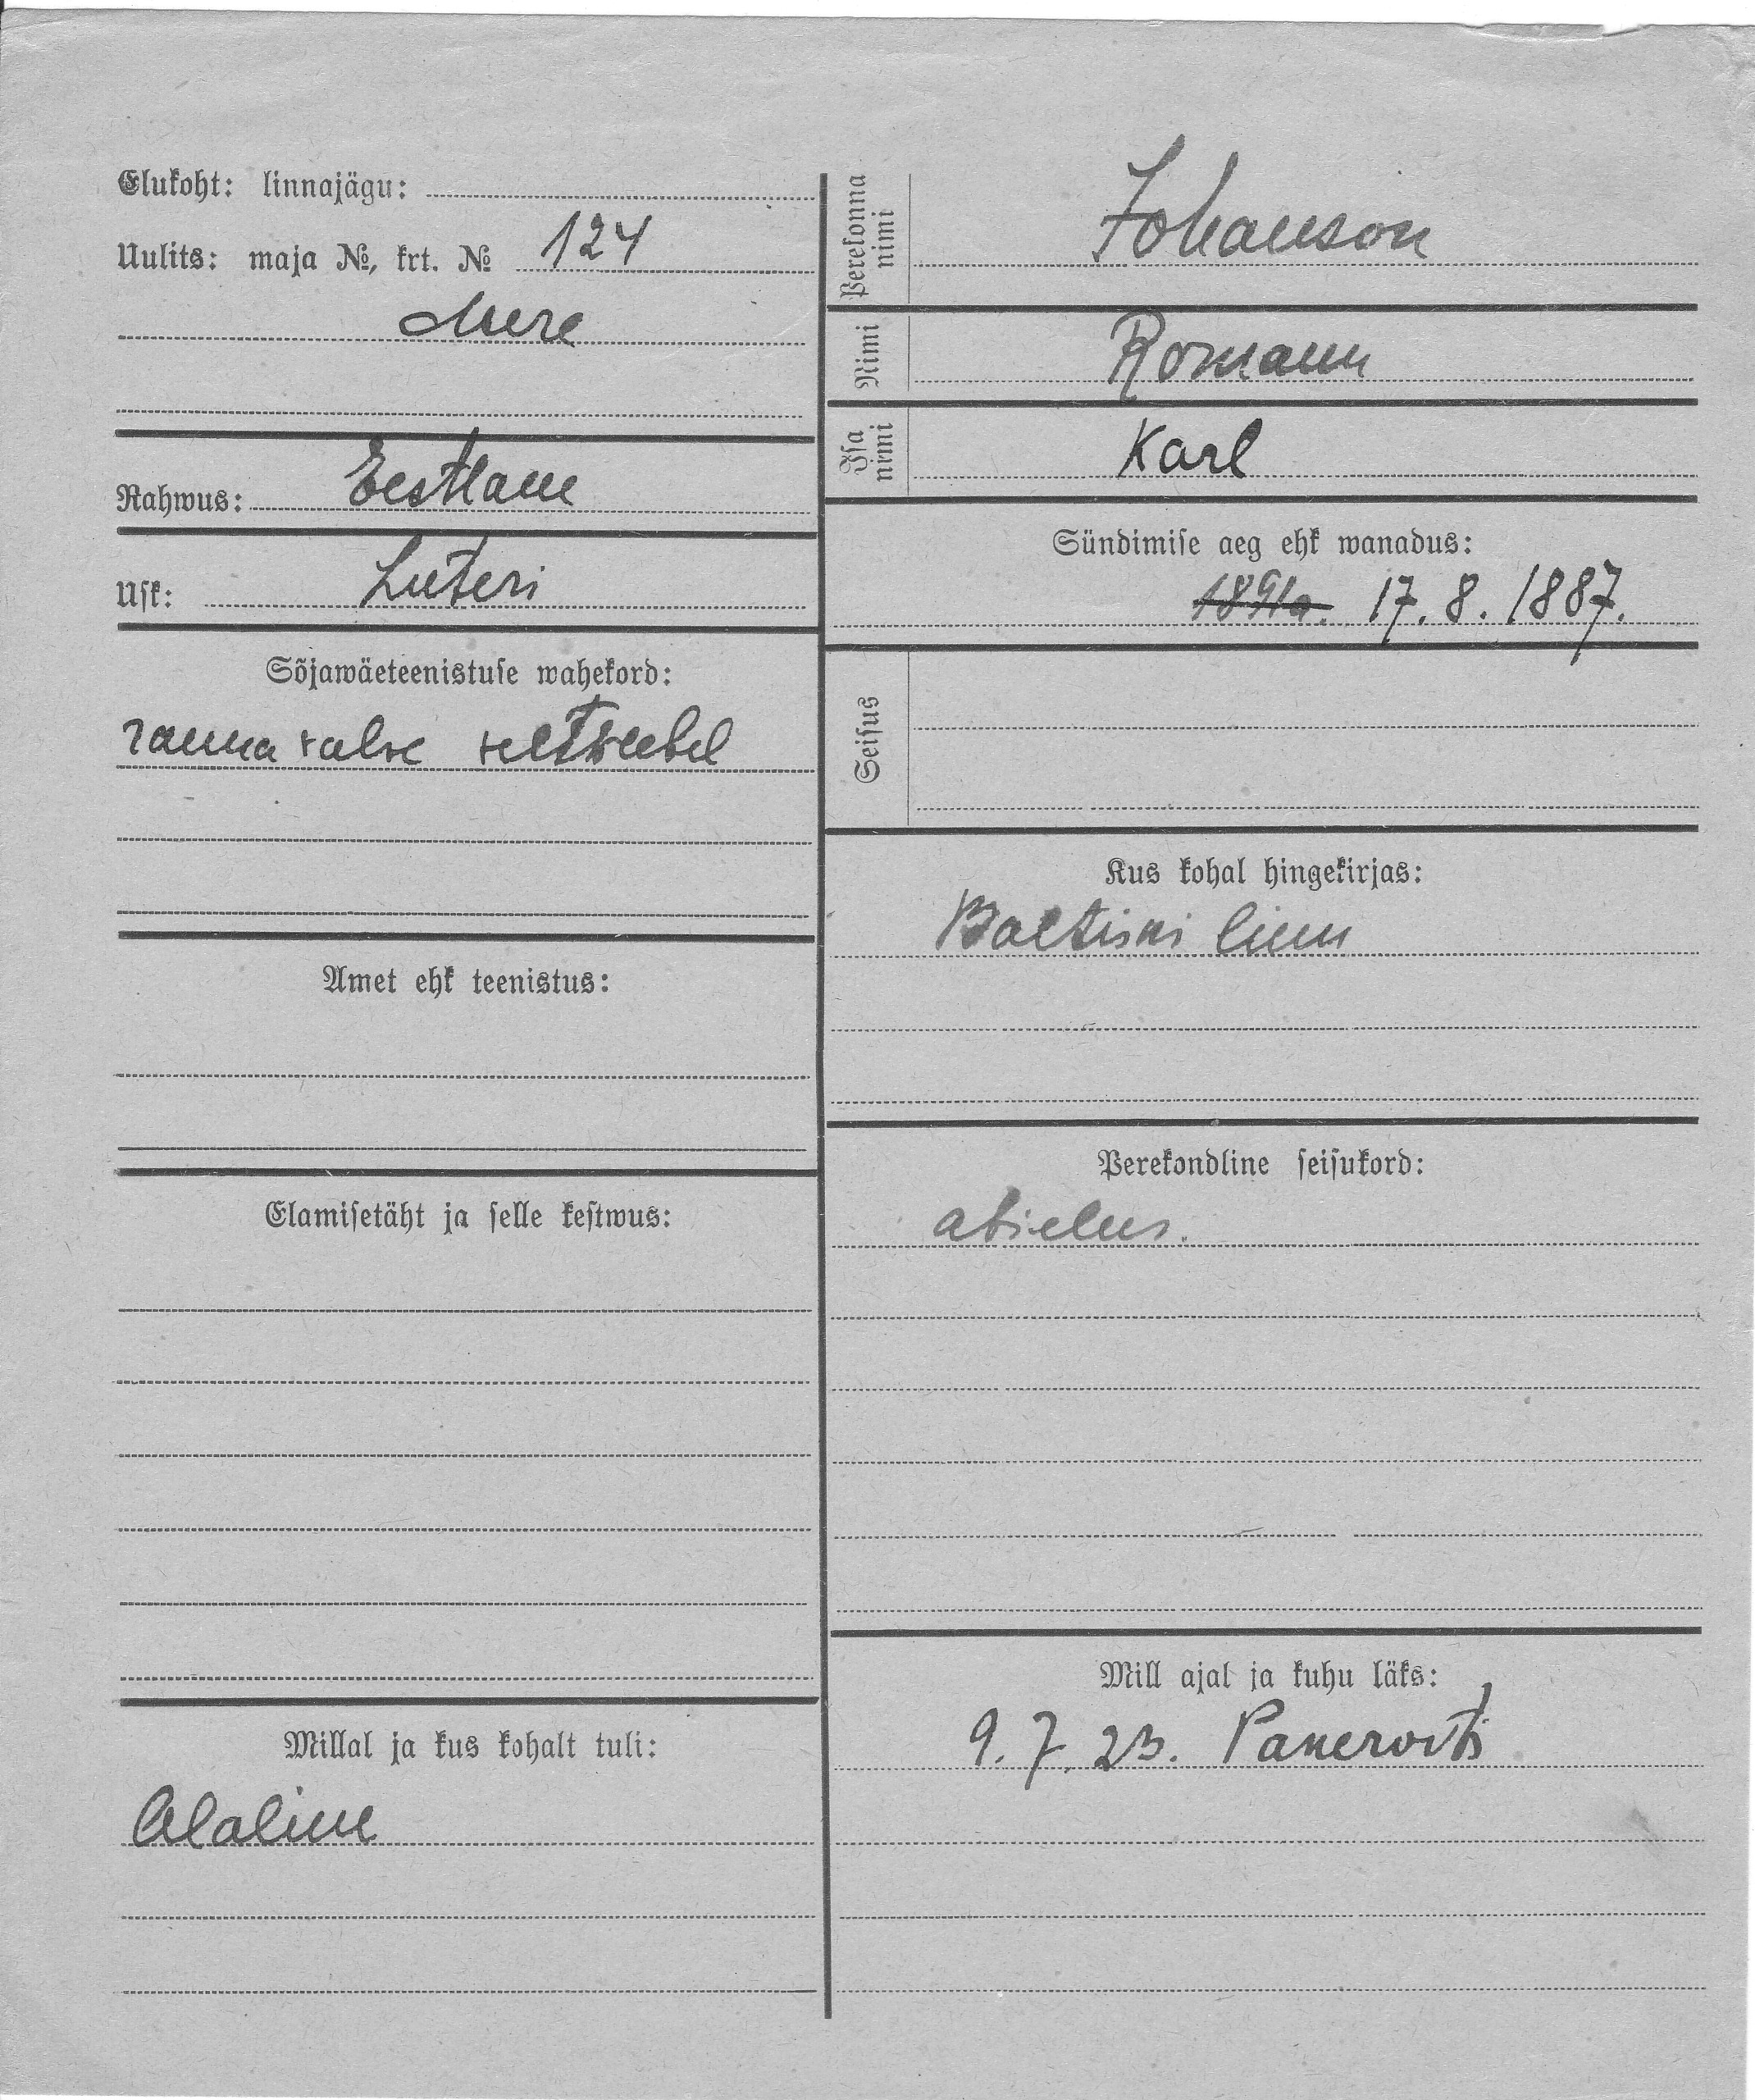 Elukoht: linnajägu:
Uulits: maja №, krt. № 124
Mere
Rahwus: Eestlane
Usk: Luteri
Sõjawäeteenistuse wahekord:
ranna valve veltveebel
Amet ehk teenistus:
Elamisetäht ja selle kestwus:
Millal ja kus kohalt tuli:
Alaline
Perekonna nimi Johanson
Nimi Romann
Isa nimi Karl
Sündimise aeg ehk wanadus:
1891a. 17. 8. 1887.
Seisus
Kus kohal hingekirjas:
Baltiski linn
Perekondline seisukord:
abielus.
Mill ajal ja kuhu läks:
9. 7. 23. Pakerorti